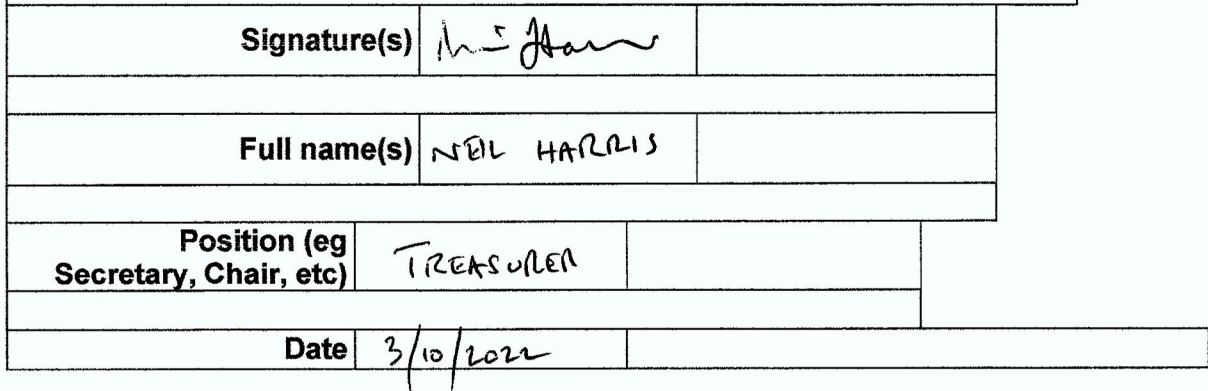 Signature(s)
Full name(s) NEIL HARRIS
Position (eg
Secretary, Chair, etc) TREASURER
Date 3/10/2022